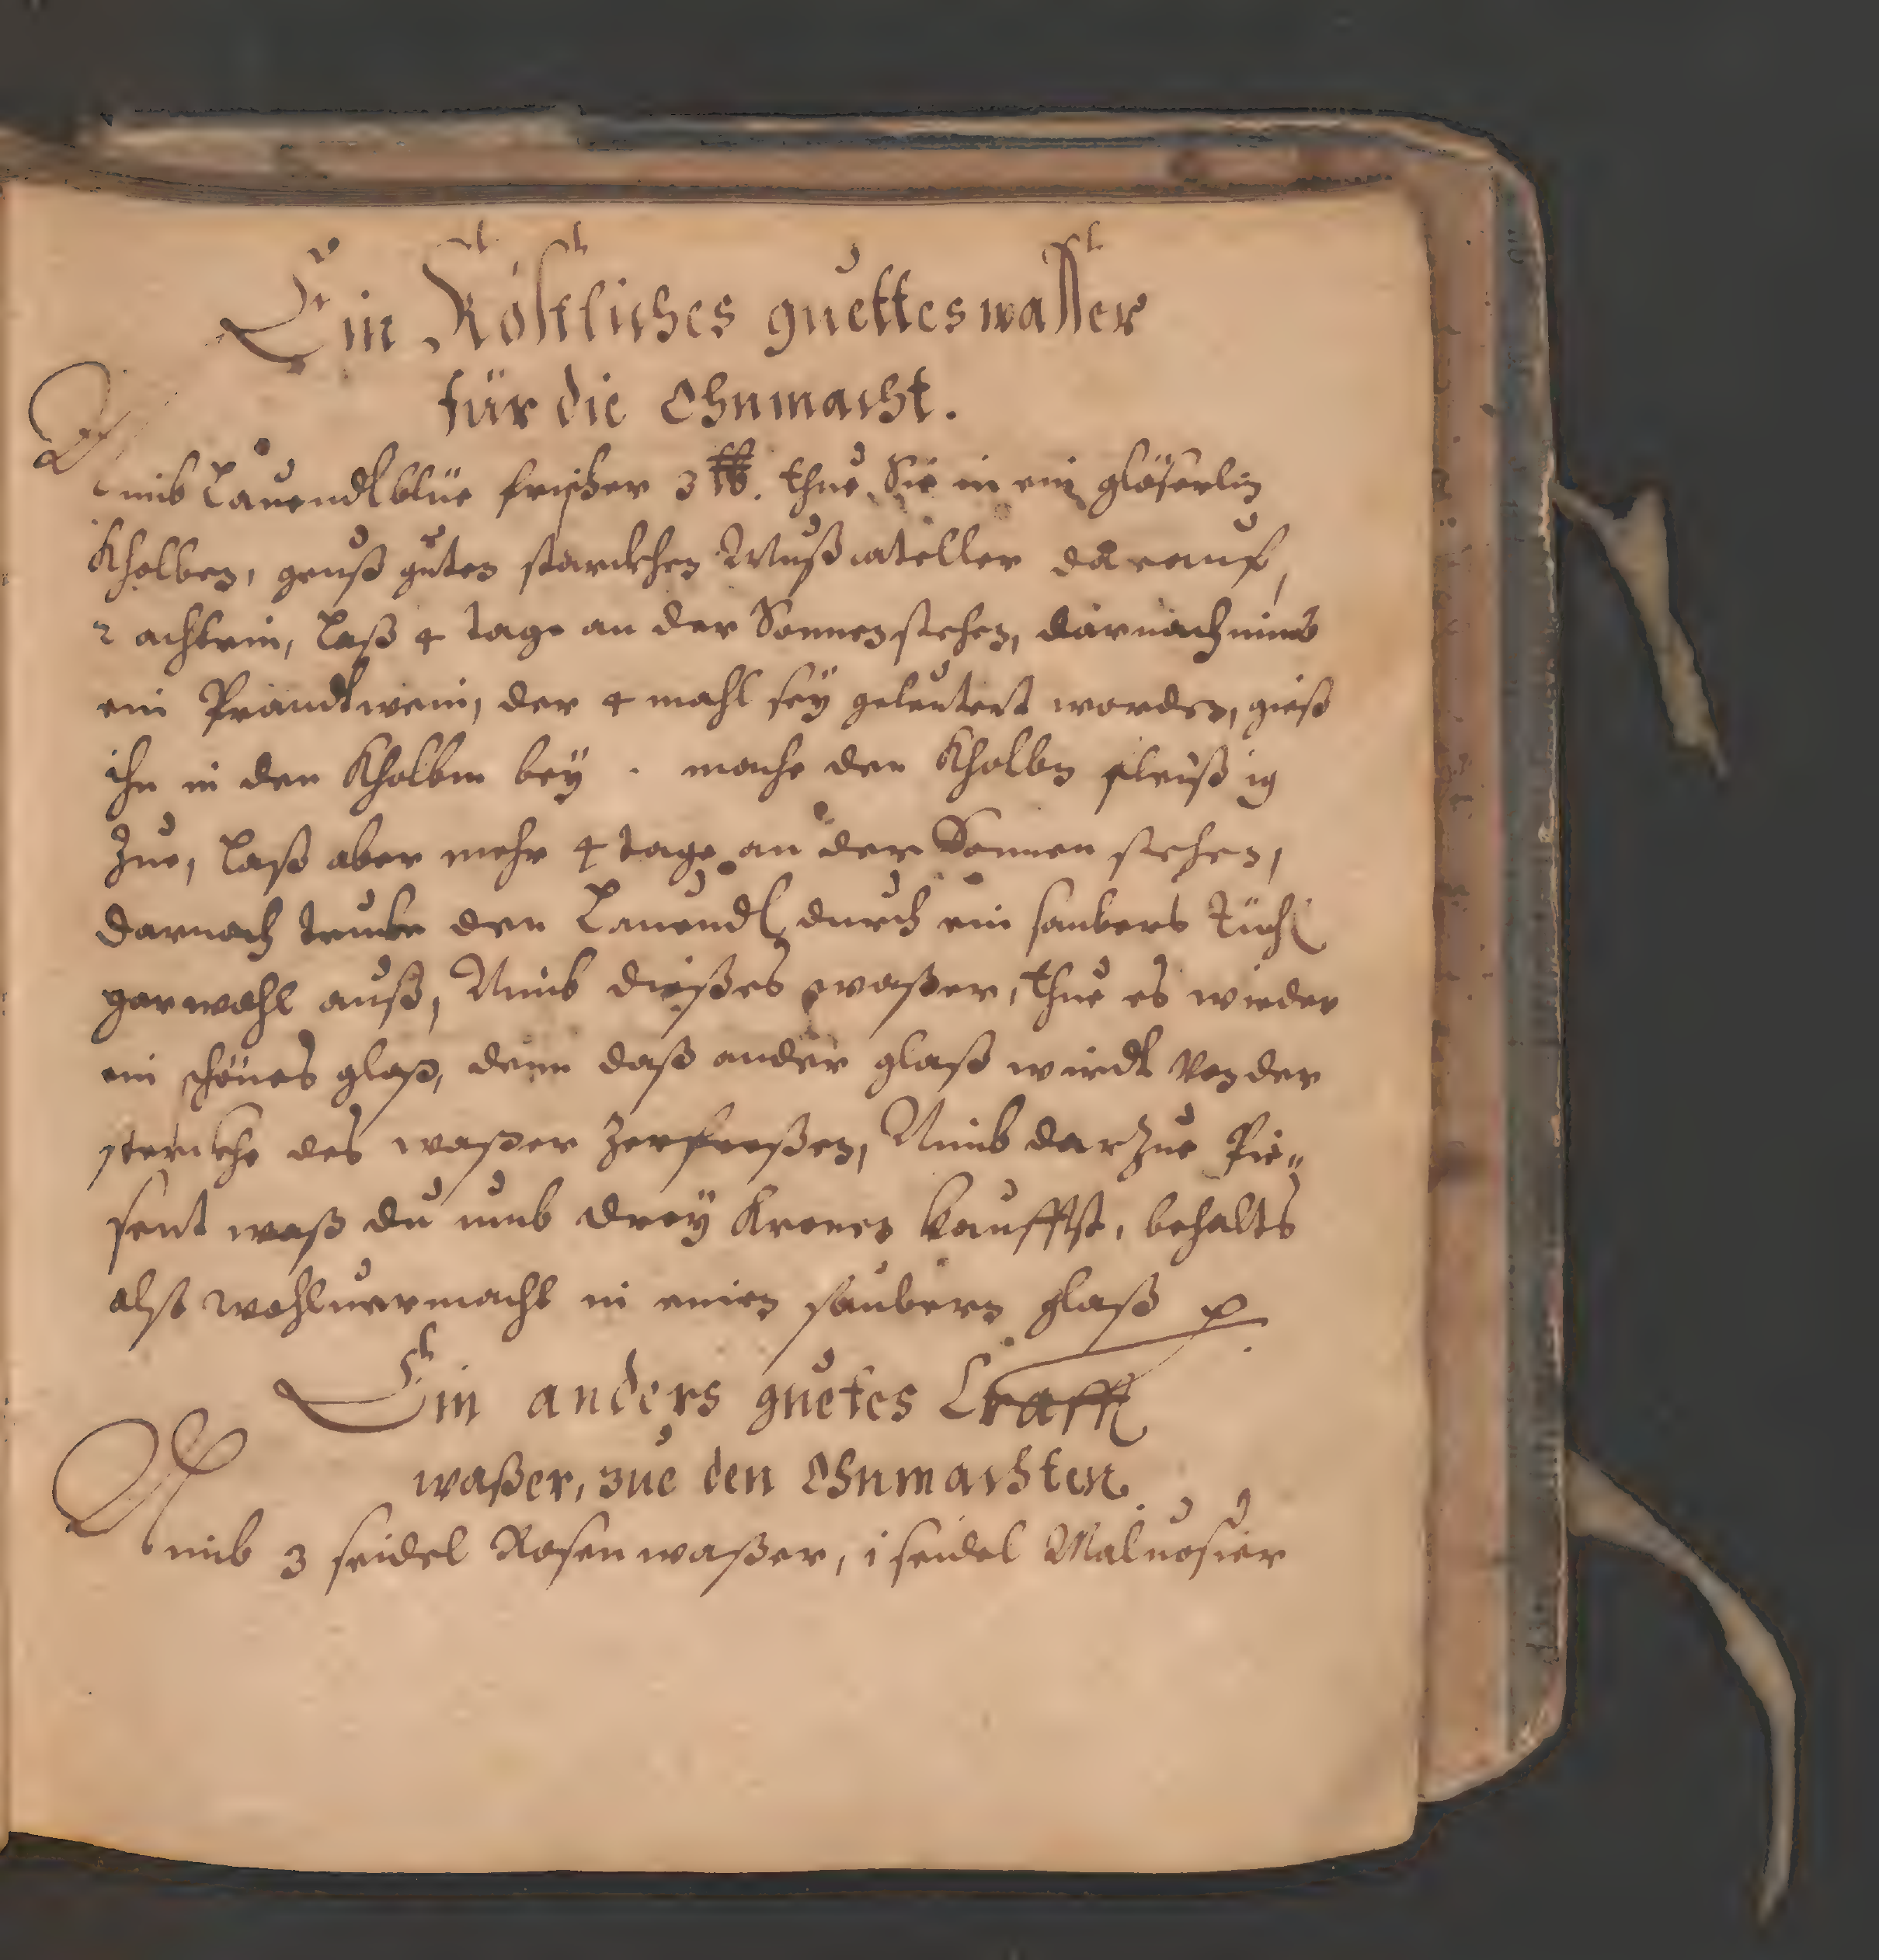 Ein Köstliches guettes wasser
für die Ohnmacht.
Nimb Lauendlblüe frischer 3 ℔. thue Sie in ein gläserlin
Kholben, geuß guten starckhen Mußcateller darauf,
2 achterin, laß 4 tage an der Sonnen stehen, darnach nimb
ein Prandtwein, der 4 mahl seÿ geleutert worden, gieß
ihn in den Kholben beÿ. mache den Kholben fleißig
Zue, laß aber mehr 4 tage an der Sonnen stehen,
darnach truke den Lauendl durch ein saubers tüchl
gar wohl auß, Nimb dießes waßer, thue es wieder
ein schönes glaß, denn daß ander glaß wirdt Von der
sterckhe des waßer Zerfreßen, Nimb darzue Pie„
sent waß du umb dreÿ Kronen kauffst, behalts
alß wohluermacht in einen saubern glaß
Ein anders guetes Crafft
waßer, zue den Ohnmachten.
Nimb 3 seidel Rosenwaßer, 1 seidel Maluosier